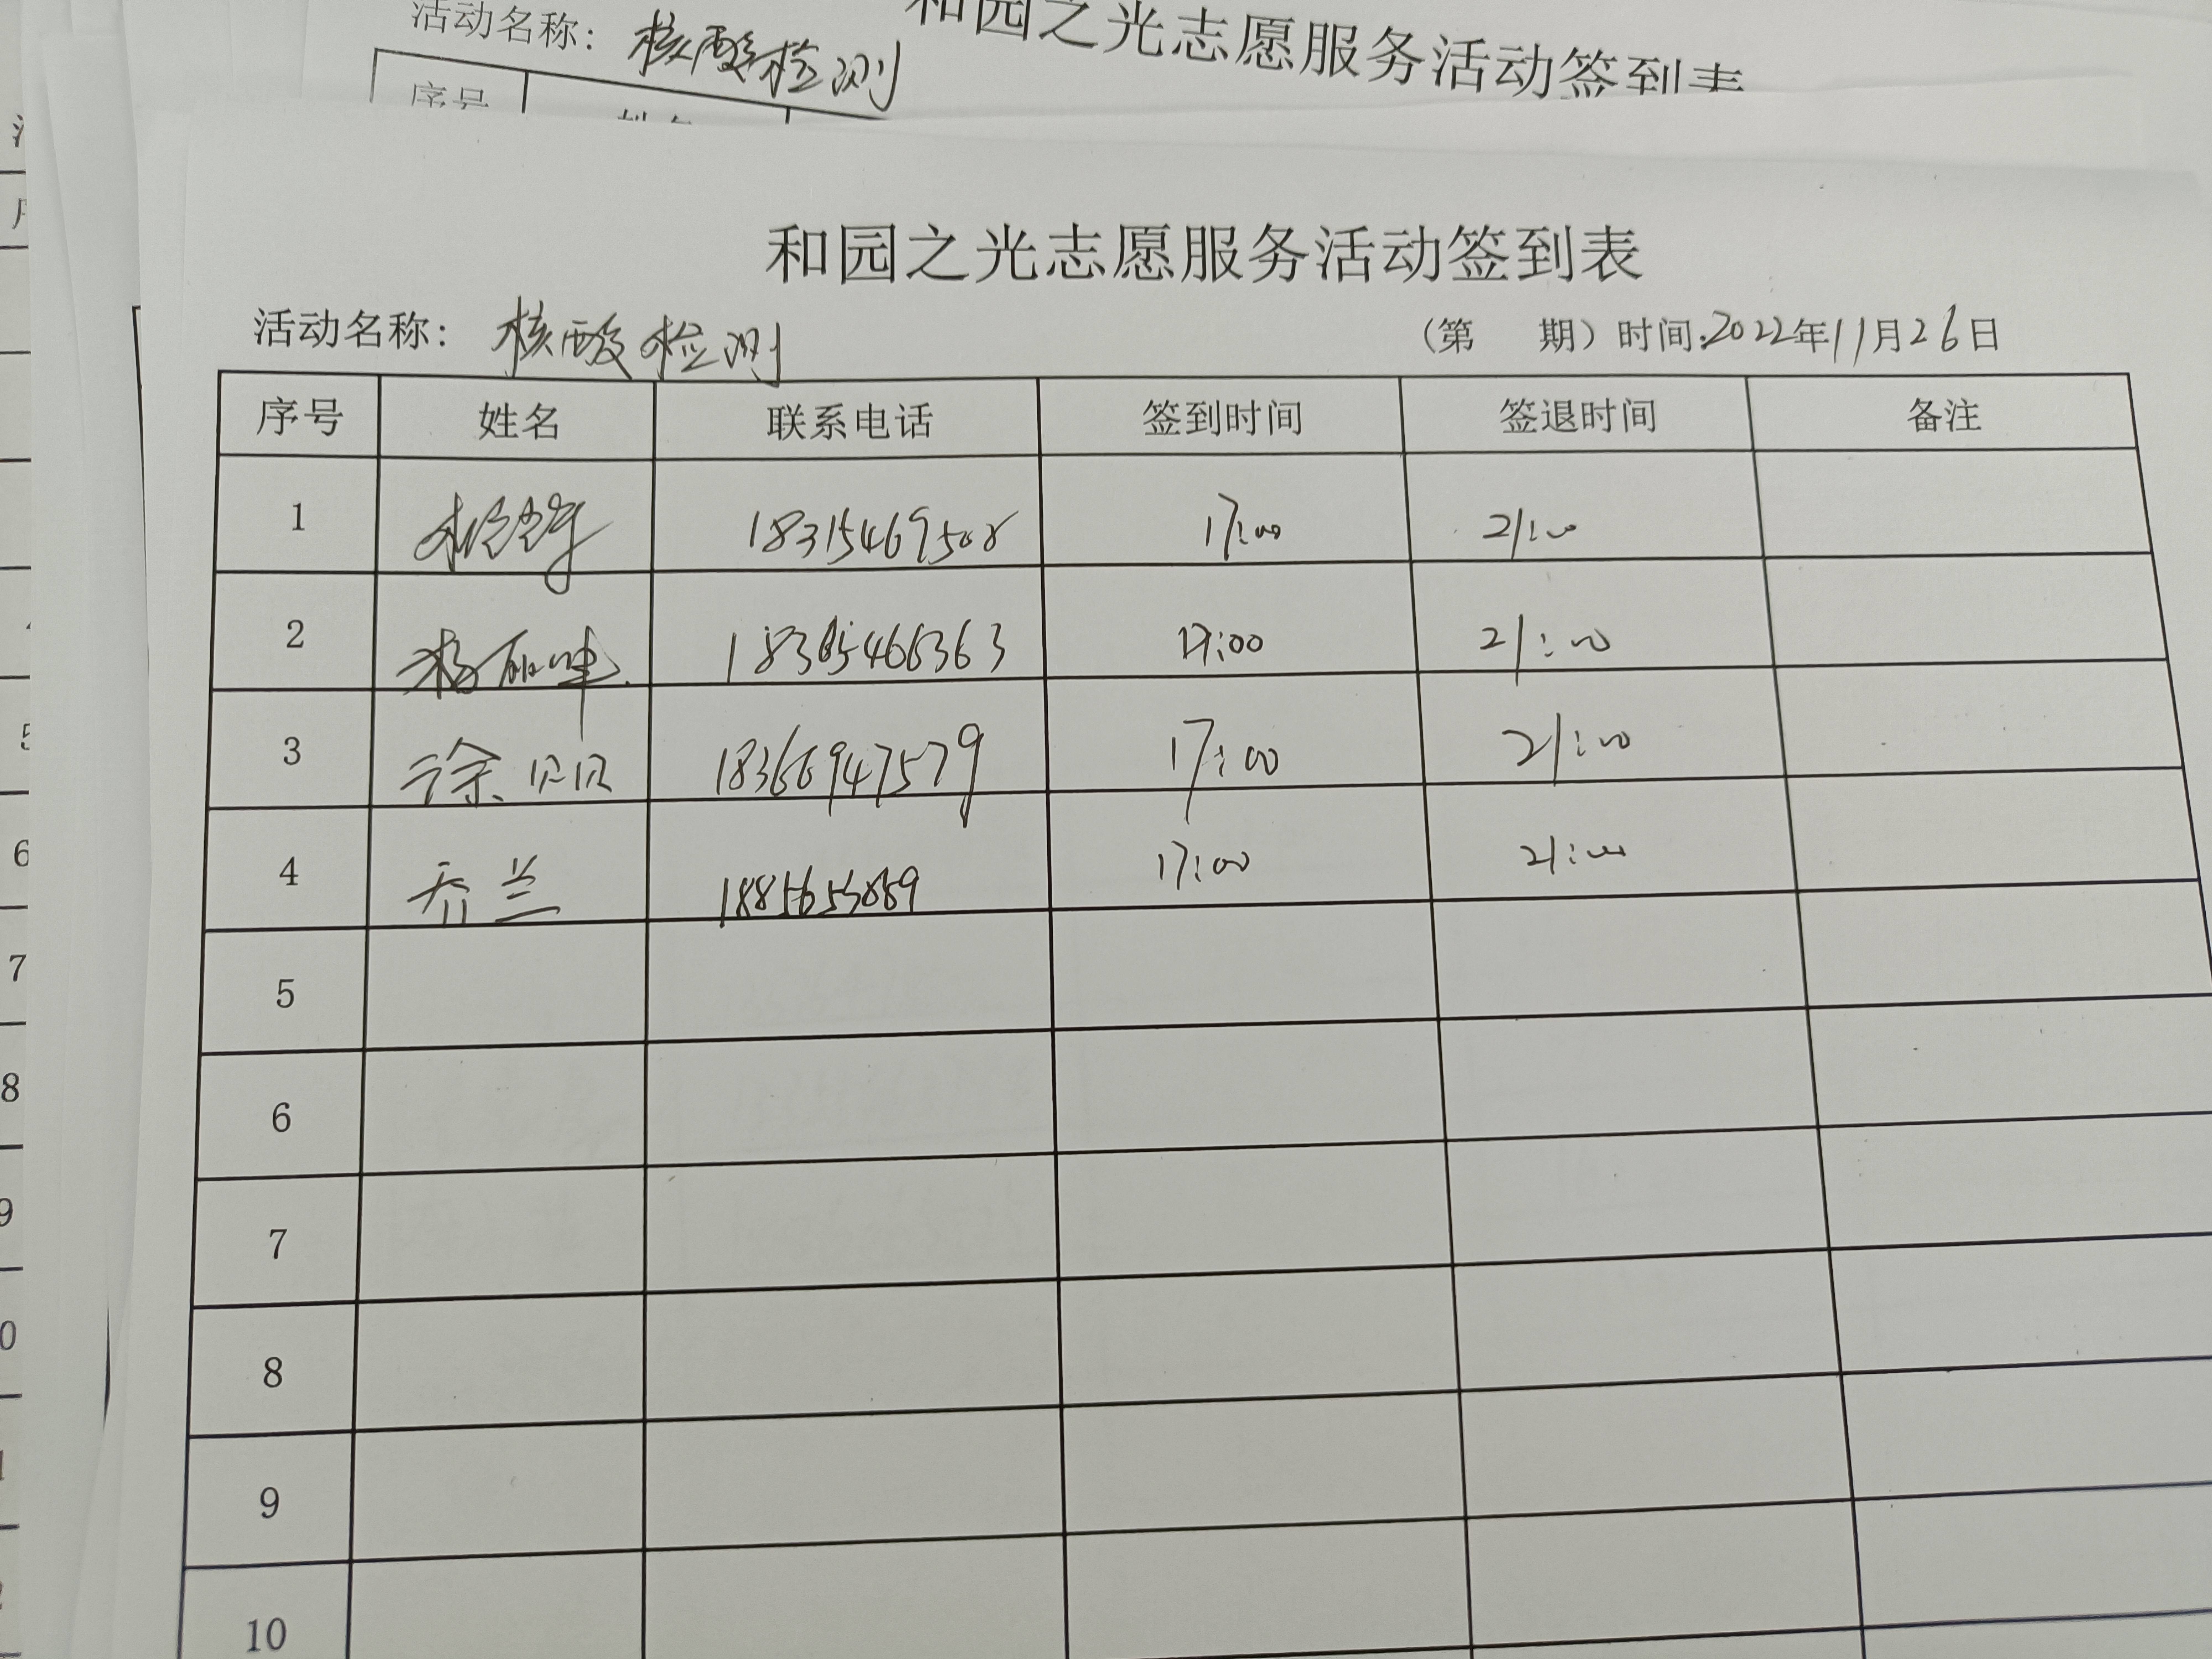 活动名称：核酸检测
和园之光志愿服务活动签到表
序号 姓名
和园之光志愿服务活动签到表
活动名称：核酸检测 （第 期）时间:2022年11月26日
序号 姓名 联系电话 签到时间 签退时间 备注
1 18315469508 17:00 21:00
2 杨 18365466363 17:00 21:00
3 徐贝贝 18366947579 17:00 21:00
4 乔兰 17:00 21:00
5
6
7
8
9
10